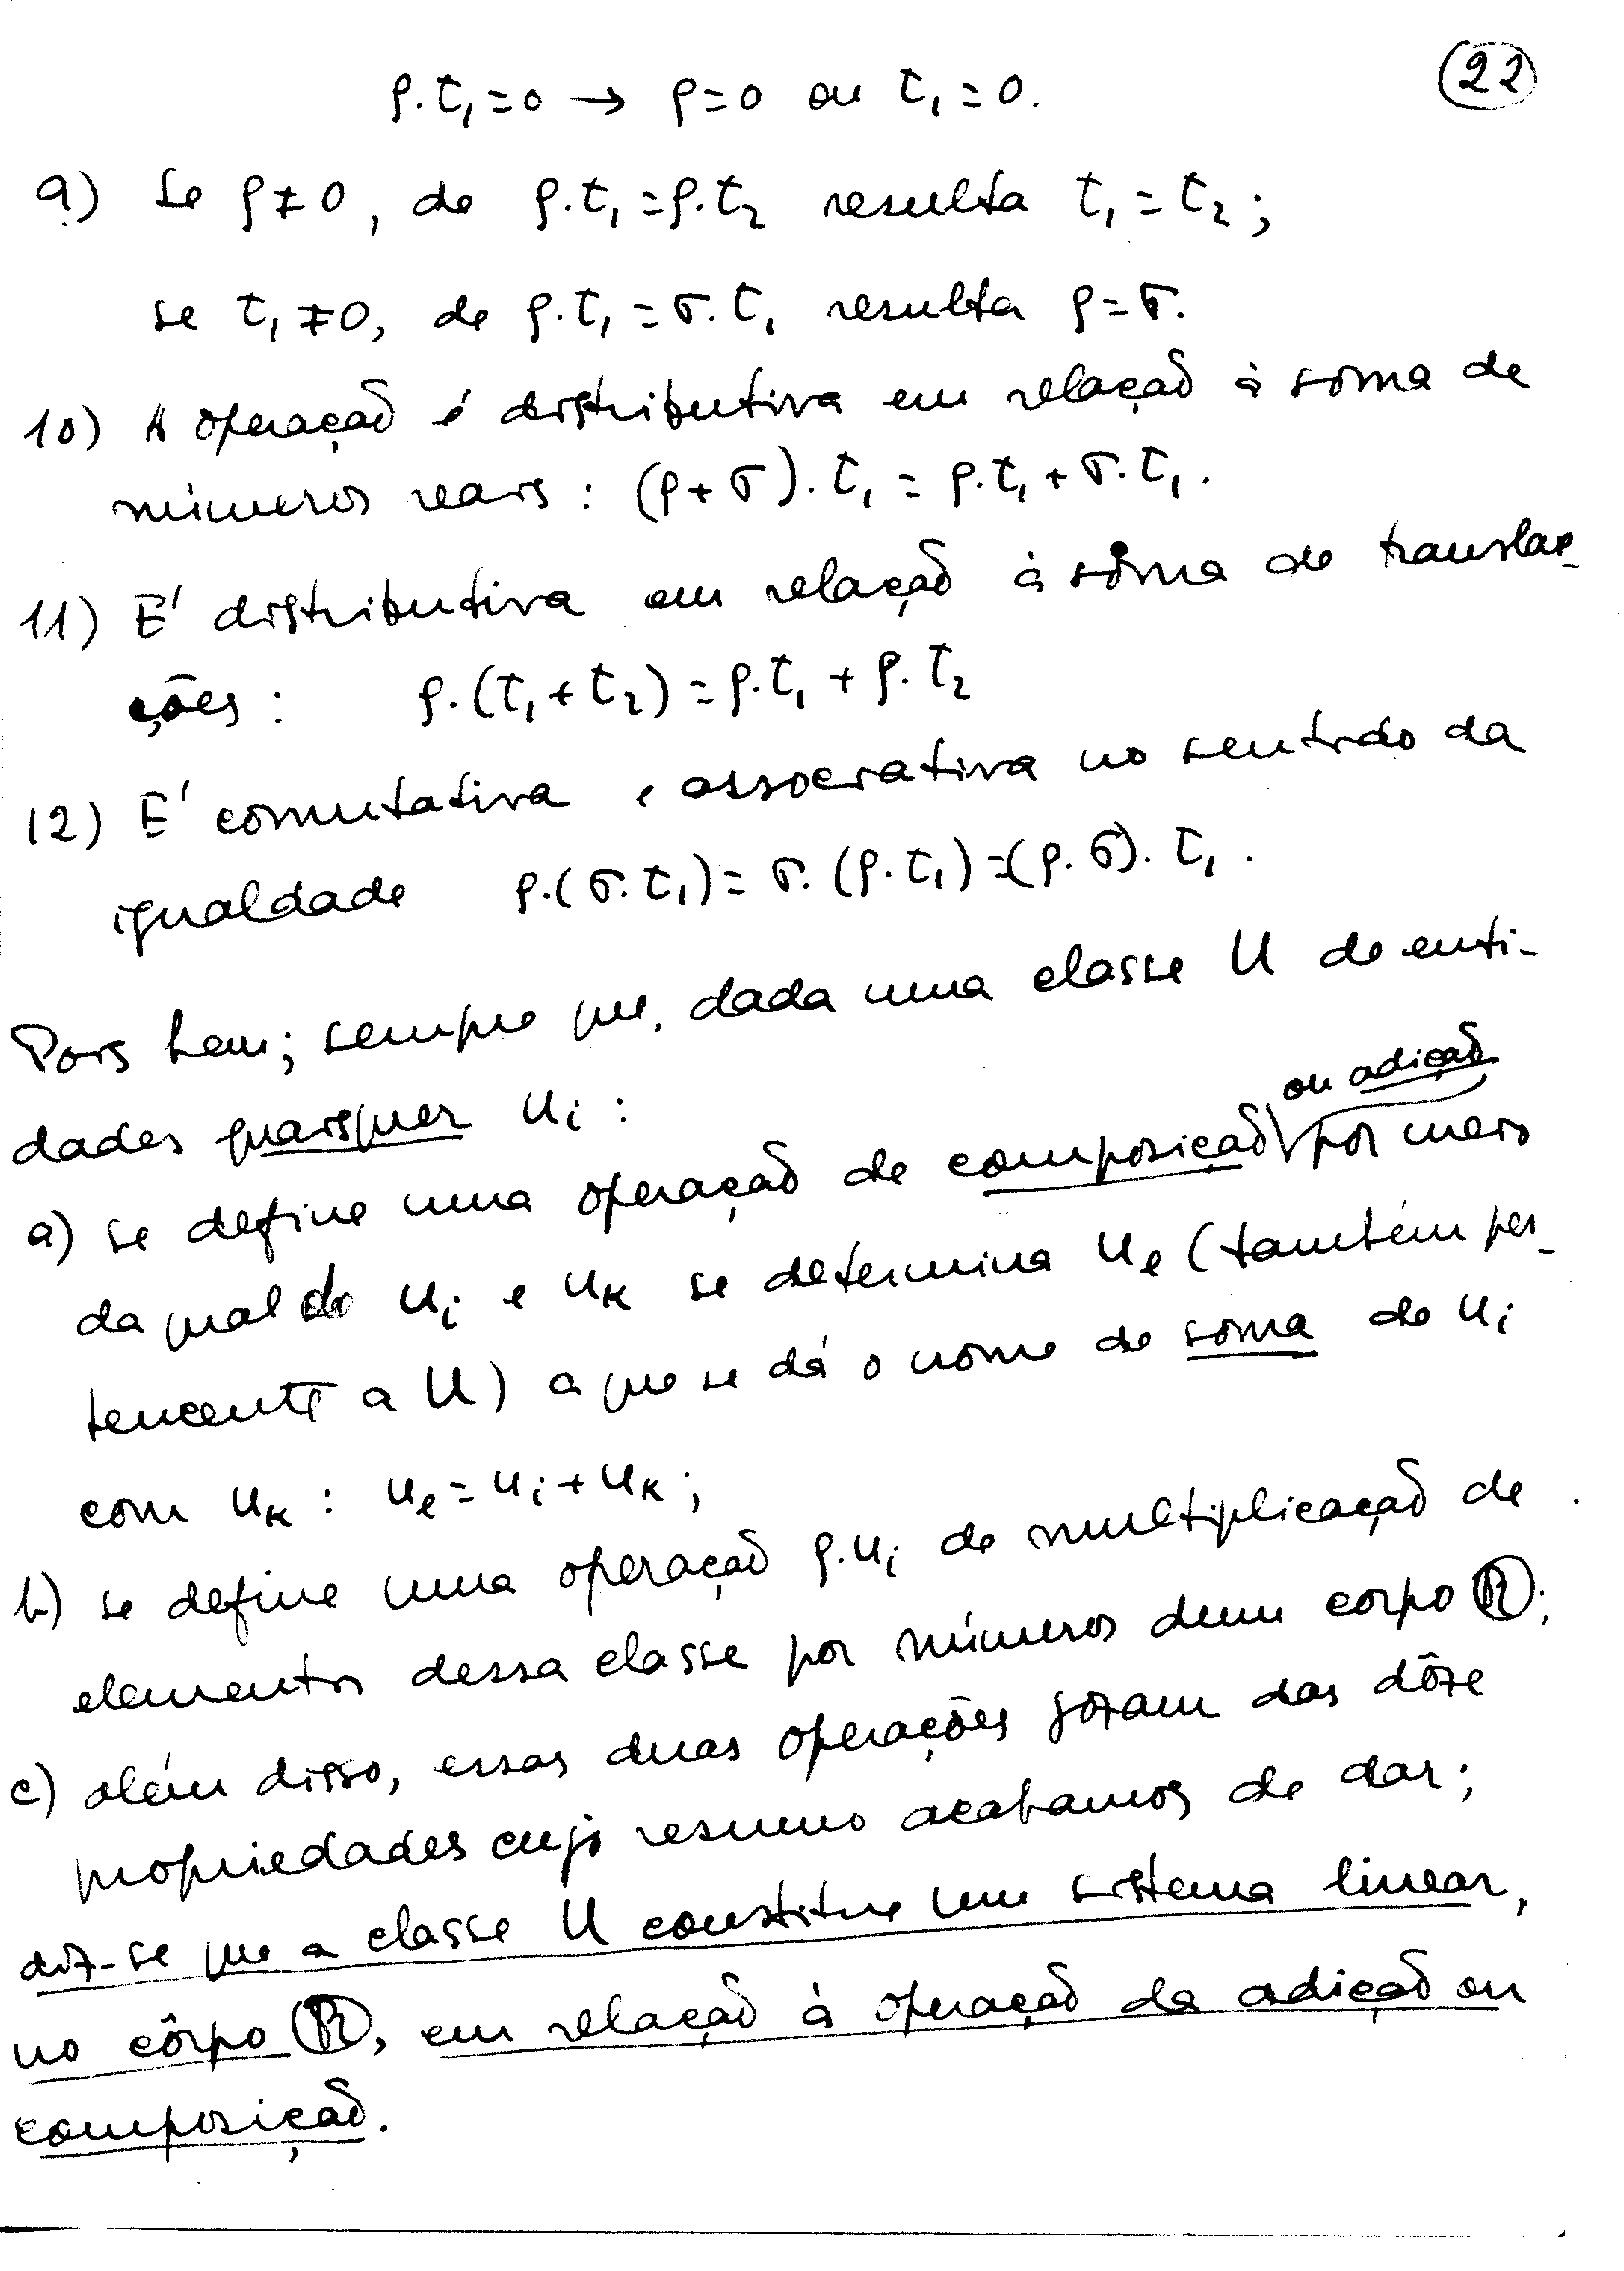 22
ρ.t₁=0 → ρ=0 ou t₁=0.
9) Se ρ≠0, de ρ.t₁=ρ.t₂ resulta t₁=t₂;
se t₁≠0, de ρ.t₁=σ.t₁ resulta ρ=σ.
10) A operação é distributiva em relação à soma de
números reais: (ρ+σ).t₁=ρ.t₁+σ.t₁.
11) É distributiva em relação à soma de transla-
ções: ρ.(t₁+t₂)=ρ.t₁+ρ.t₂
12) É comutativa e associativa no sentido da
igualdade ρ.(σ.t₁)=σ.(ρ.t₁)=(ρ.σ).t₁.
Pois bem; sempre que, dada uma classe U de enti-
dades quaisquer uᵢ:
a) se define uma operação de composição ou adição por meio
da qual de uᵢ e uₖ se determina uₗ (também per-
tencente a U) a que se dá o nome de soma de uᵢ
com uₖ: uₗ=uᵢ+uₖ;
b) se define uma operação ρ.uᵢ de multiplicação de
elementos dessa classe por números dum corpo Ⓡ;
c) além disso, essas duas operações gozam das dôze
propriedades cujo resumo acabamos de dar;
diz-se que a classe U constitue um sistema linear,
no côrpo Ⓡ, em relação à operação da adição ou
composição.